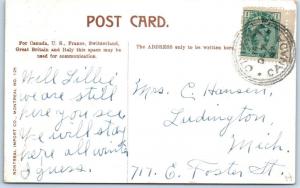 POST CARD.
For Canada, U. S., France, Switzerland,
Great Britain and Italy this space may be
used for communication.
The ADDRESS only to be written here.
MONTREAL IMPORT CO., MONTREAL NO.
Well Tillie
we are still
here you see
we will stay
here all winter
I guess.
Mrs. C. Hansen,
Ludington,
Mich.
717. E. Foster St.